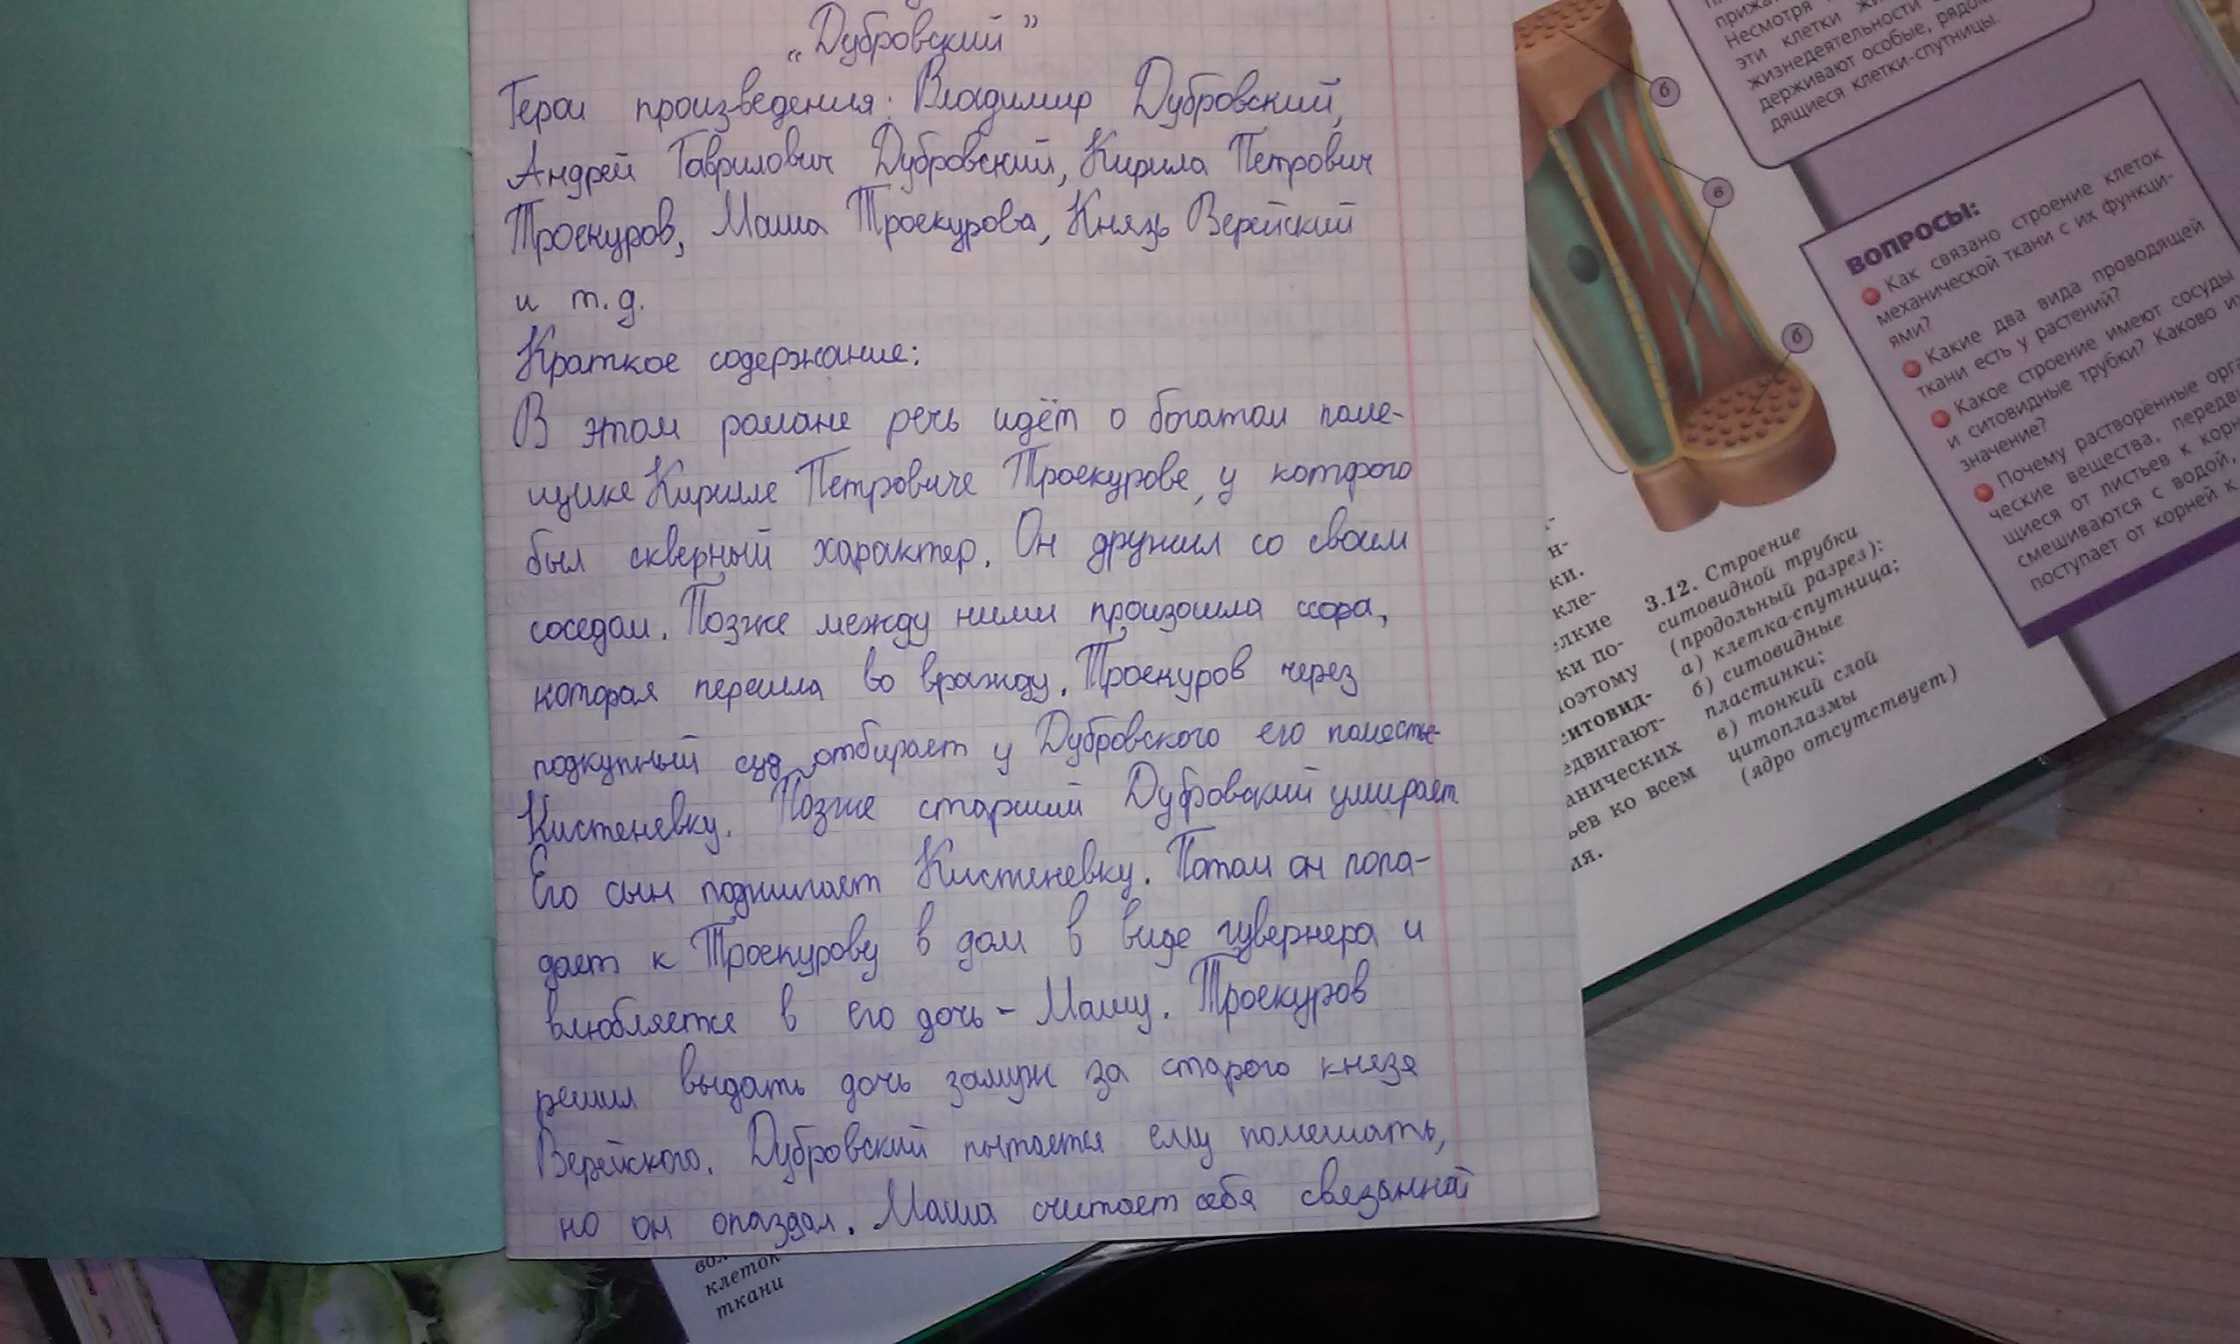 „Дубровский”
Герои произведения: Владимир Дубровский,
Андрей Гаврилович Дубровский, Кирила Петрович
Троекуров, Маша Троекурова, Князь Верейский
и т.д.
Краткое содержание:
В этом романе речь идёт о богатом поме-
щике Кирилле Петровиче Троекурове, у которого
был скверный характер. Он дружил со своим
соседом. Позже между ними произошла ссора,
которая перешла во вражду. Троекуров через
подкупный суд отбирает у Дубровского его поместье
Кистеневку. Позже старший Дубровский умирает
Его сын поджигает Кистеневку. Потом он попа-
дает к Троекурову в дом в виде гувернера и
влюбляется в его дочь - Машу. Троекуров
решил выдать дочь замуж за старого князя
Верейского. Дубровский пытается ему помешать,
но он опоздал. Маша считает себя связанной
прижа
Несмотря
эти клетки
жизнедеятельности
держивают особые, рядом
дящиеся клетки-спутницы.
б
в
б
ВОПРОСЫ:
Как связано строение клеток
механической ткани с их функци-
ями?
Какие два вида проводящей
ткани есть у растений?
Какое строение имеют сосуды
и ситовидные трубки? Каково их
значение?
Почему растворённые орга
ческие вещества, передви
щиеся от листьев к корн
смешиваются с водой,
поступает от корней к
3.12. Строение
ситовидной трубки
(продольный разрез):
а) клетка-спутница;
б) ситовидные
пластинки;
в) тонкий слой
цитоплазмы
(ядро отсутствует)
н-
ки.
кле-
елкие
ки по-
поэтому
ситовид-
едвигают-
анических
ьев ко всем
ия.
клеток
ткани